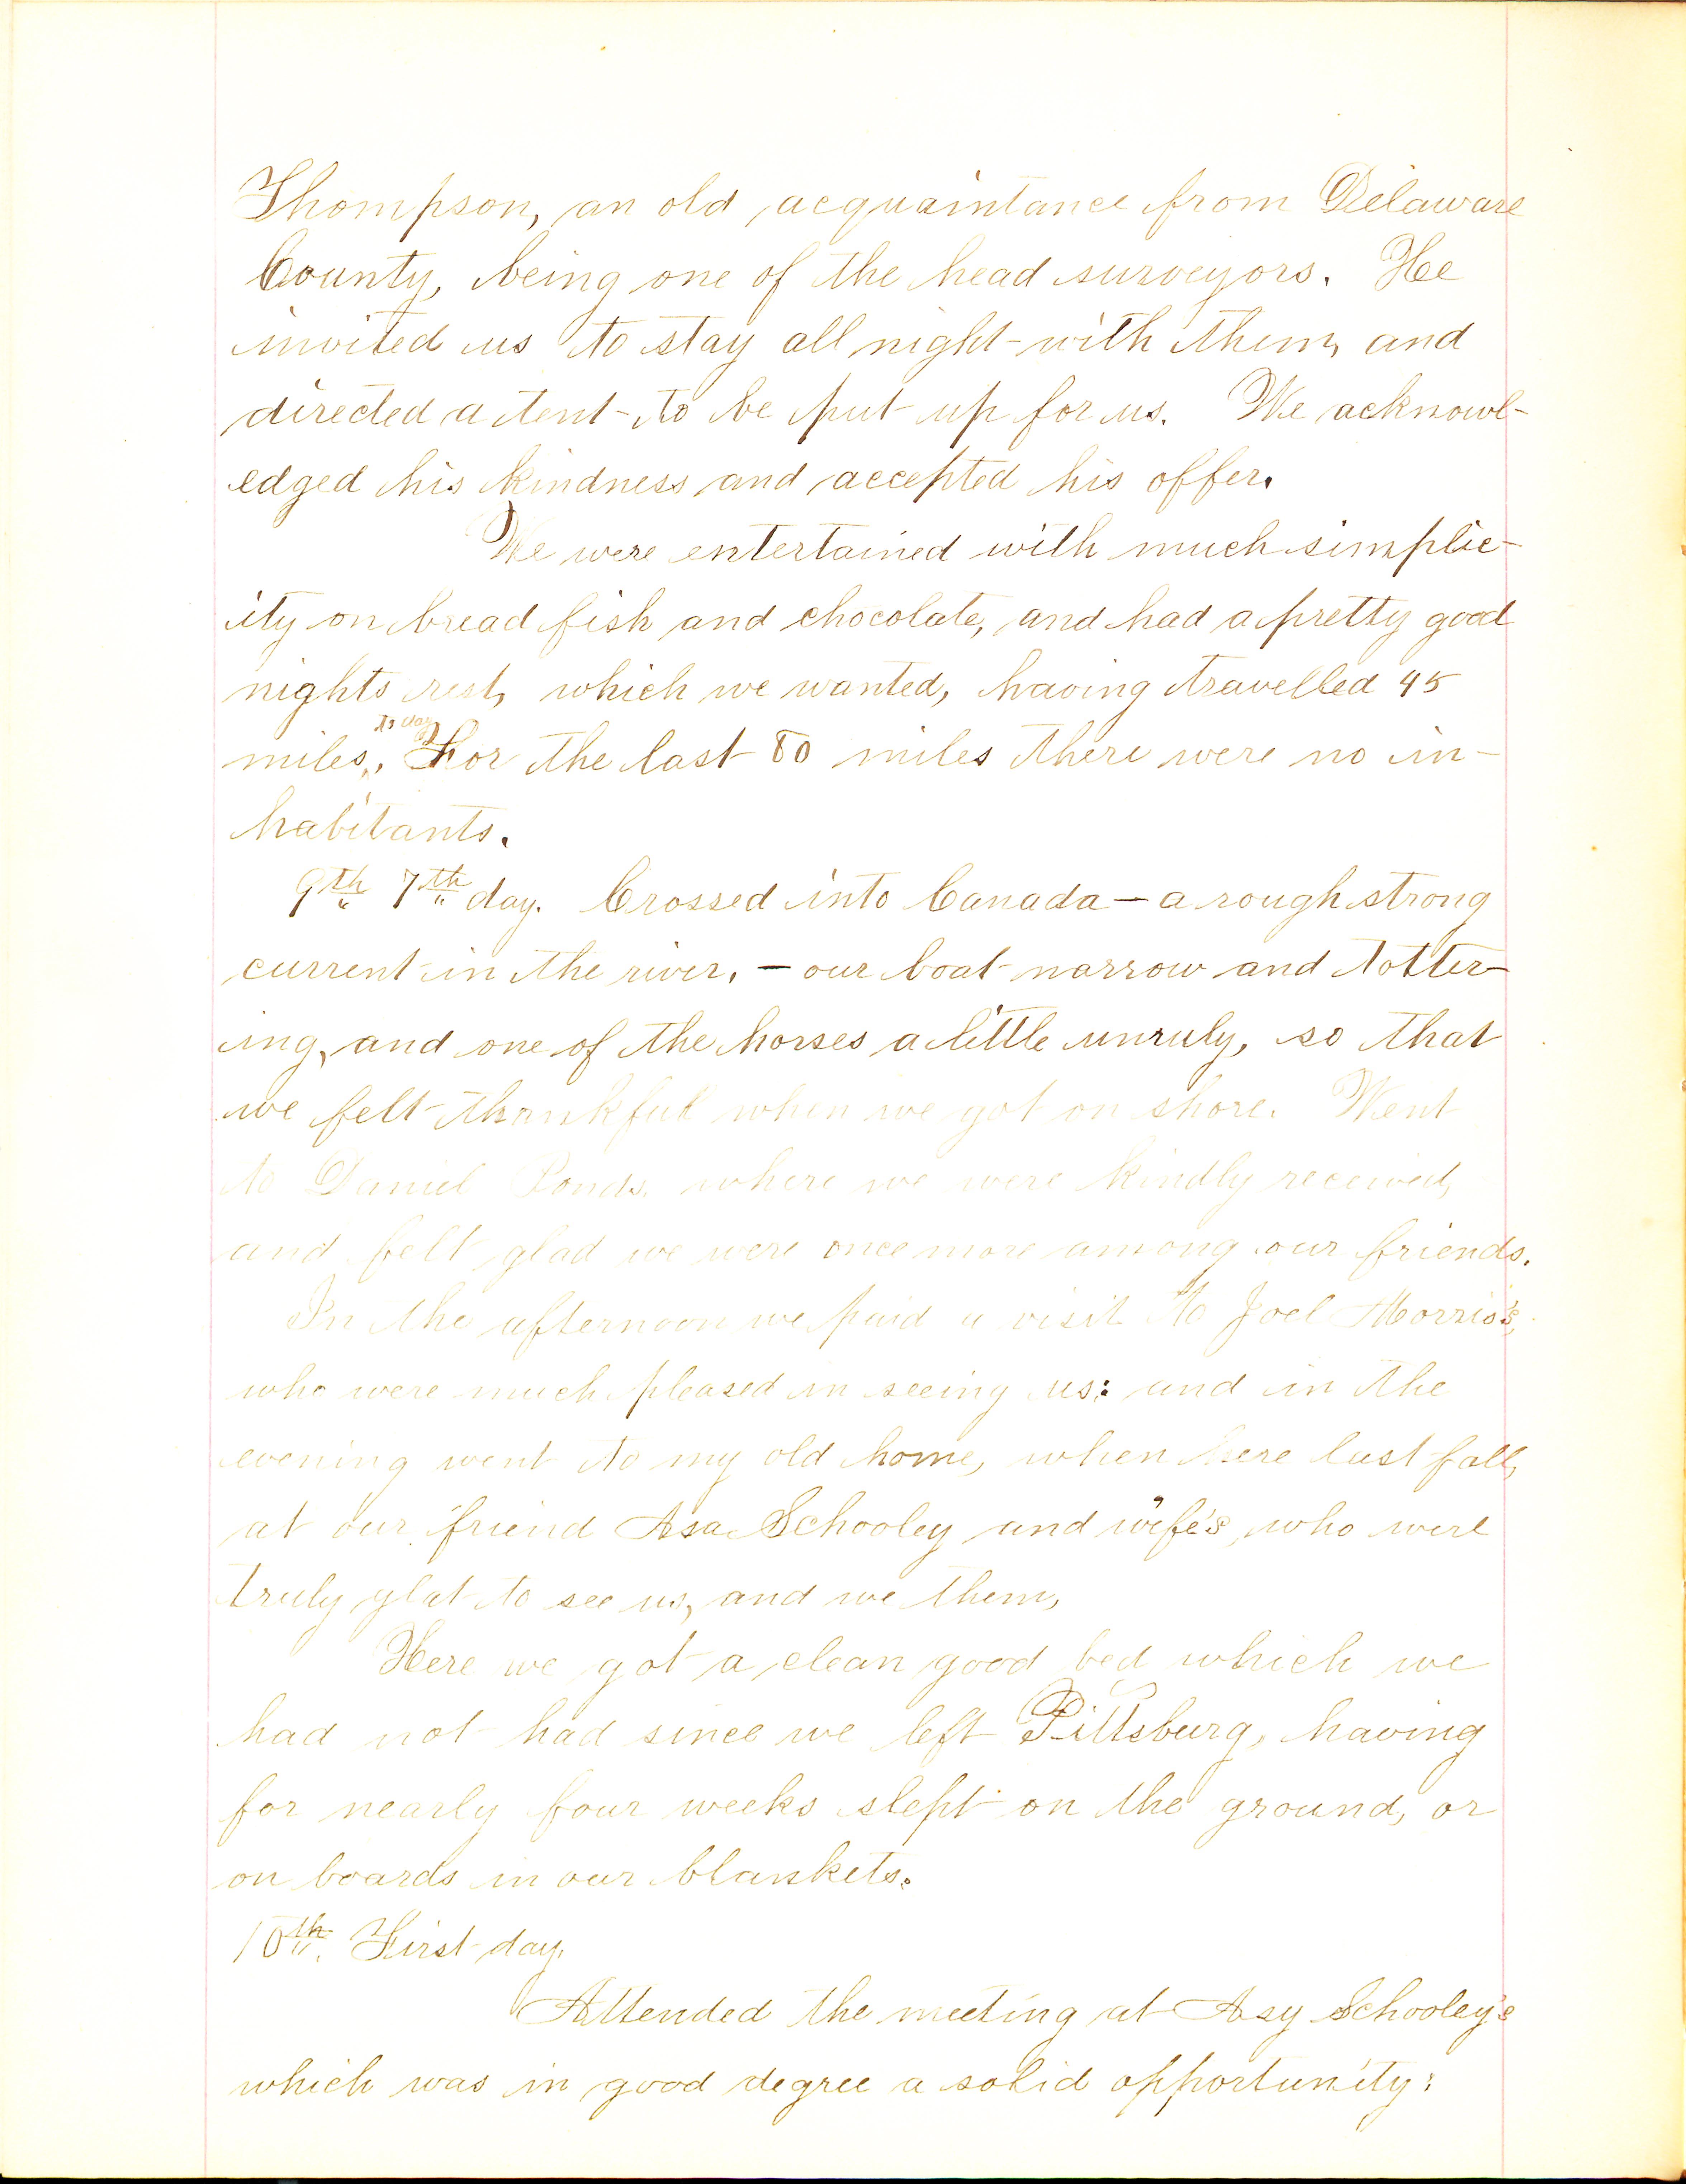 Thompson, an old acquaintance from Delaware
County, being one of the head surveyors. He
invited us to stay all night with them, and
directed a tent to be put up for us. We acknowl-
edged his kindness and accepted his offer.
We were entertained with much simplic-
ity on bread fish and chocolate, and had a pretty good
nights rest, which we wanted, having travelled 45
to day
miles. For the last 80 miles there were no in-
habitants.
9th 7th day. Crossed into Canada — a rough strong
current in the river, — our boat narrow and totter-
ing, and one of the horses a little unruly, so that
we felt thankful when we got on shore. Went
to Daniel Ponds, where we were kindly received,
and felt glad we were once more among our friends.
In the afternoon we paid a visit to Joel Morris's,
who were much pleased in seeing us: and in the
evening went to my old home, when here last fall,
at our friend Asa Schooley and wife's, who were
truly glat to see us, and we them,
Here we got a clean good bed which we
had not had since we left Pittsburg, having
for nearly four weeks slept on the ground, or
on boards in our blankets.
10th. First day.
Attended the meeting at Asy Schooley's
which was in good degree a solid opportunity: